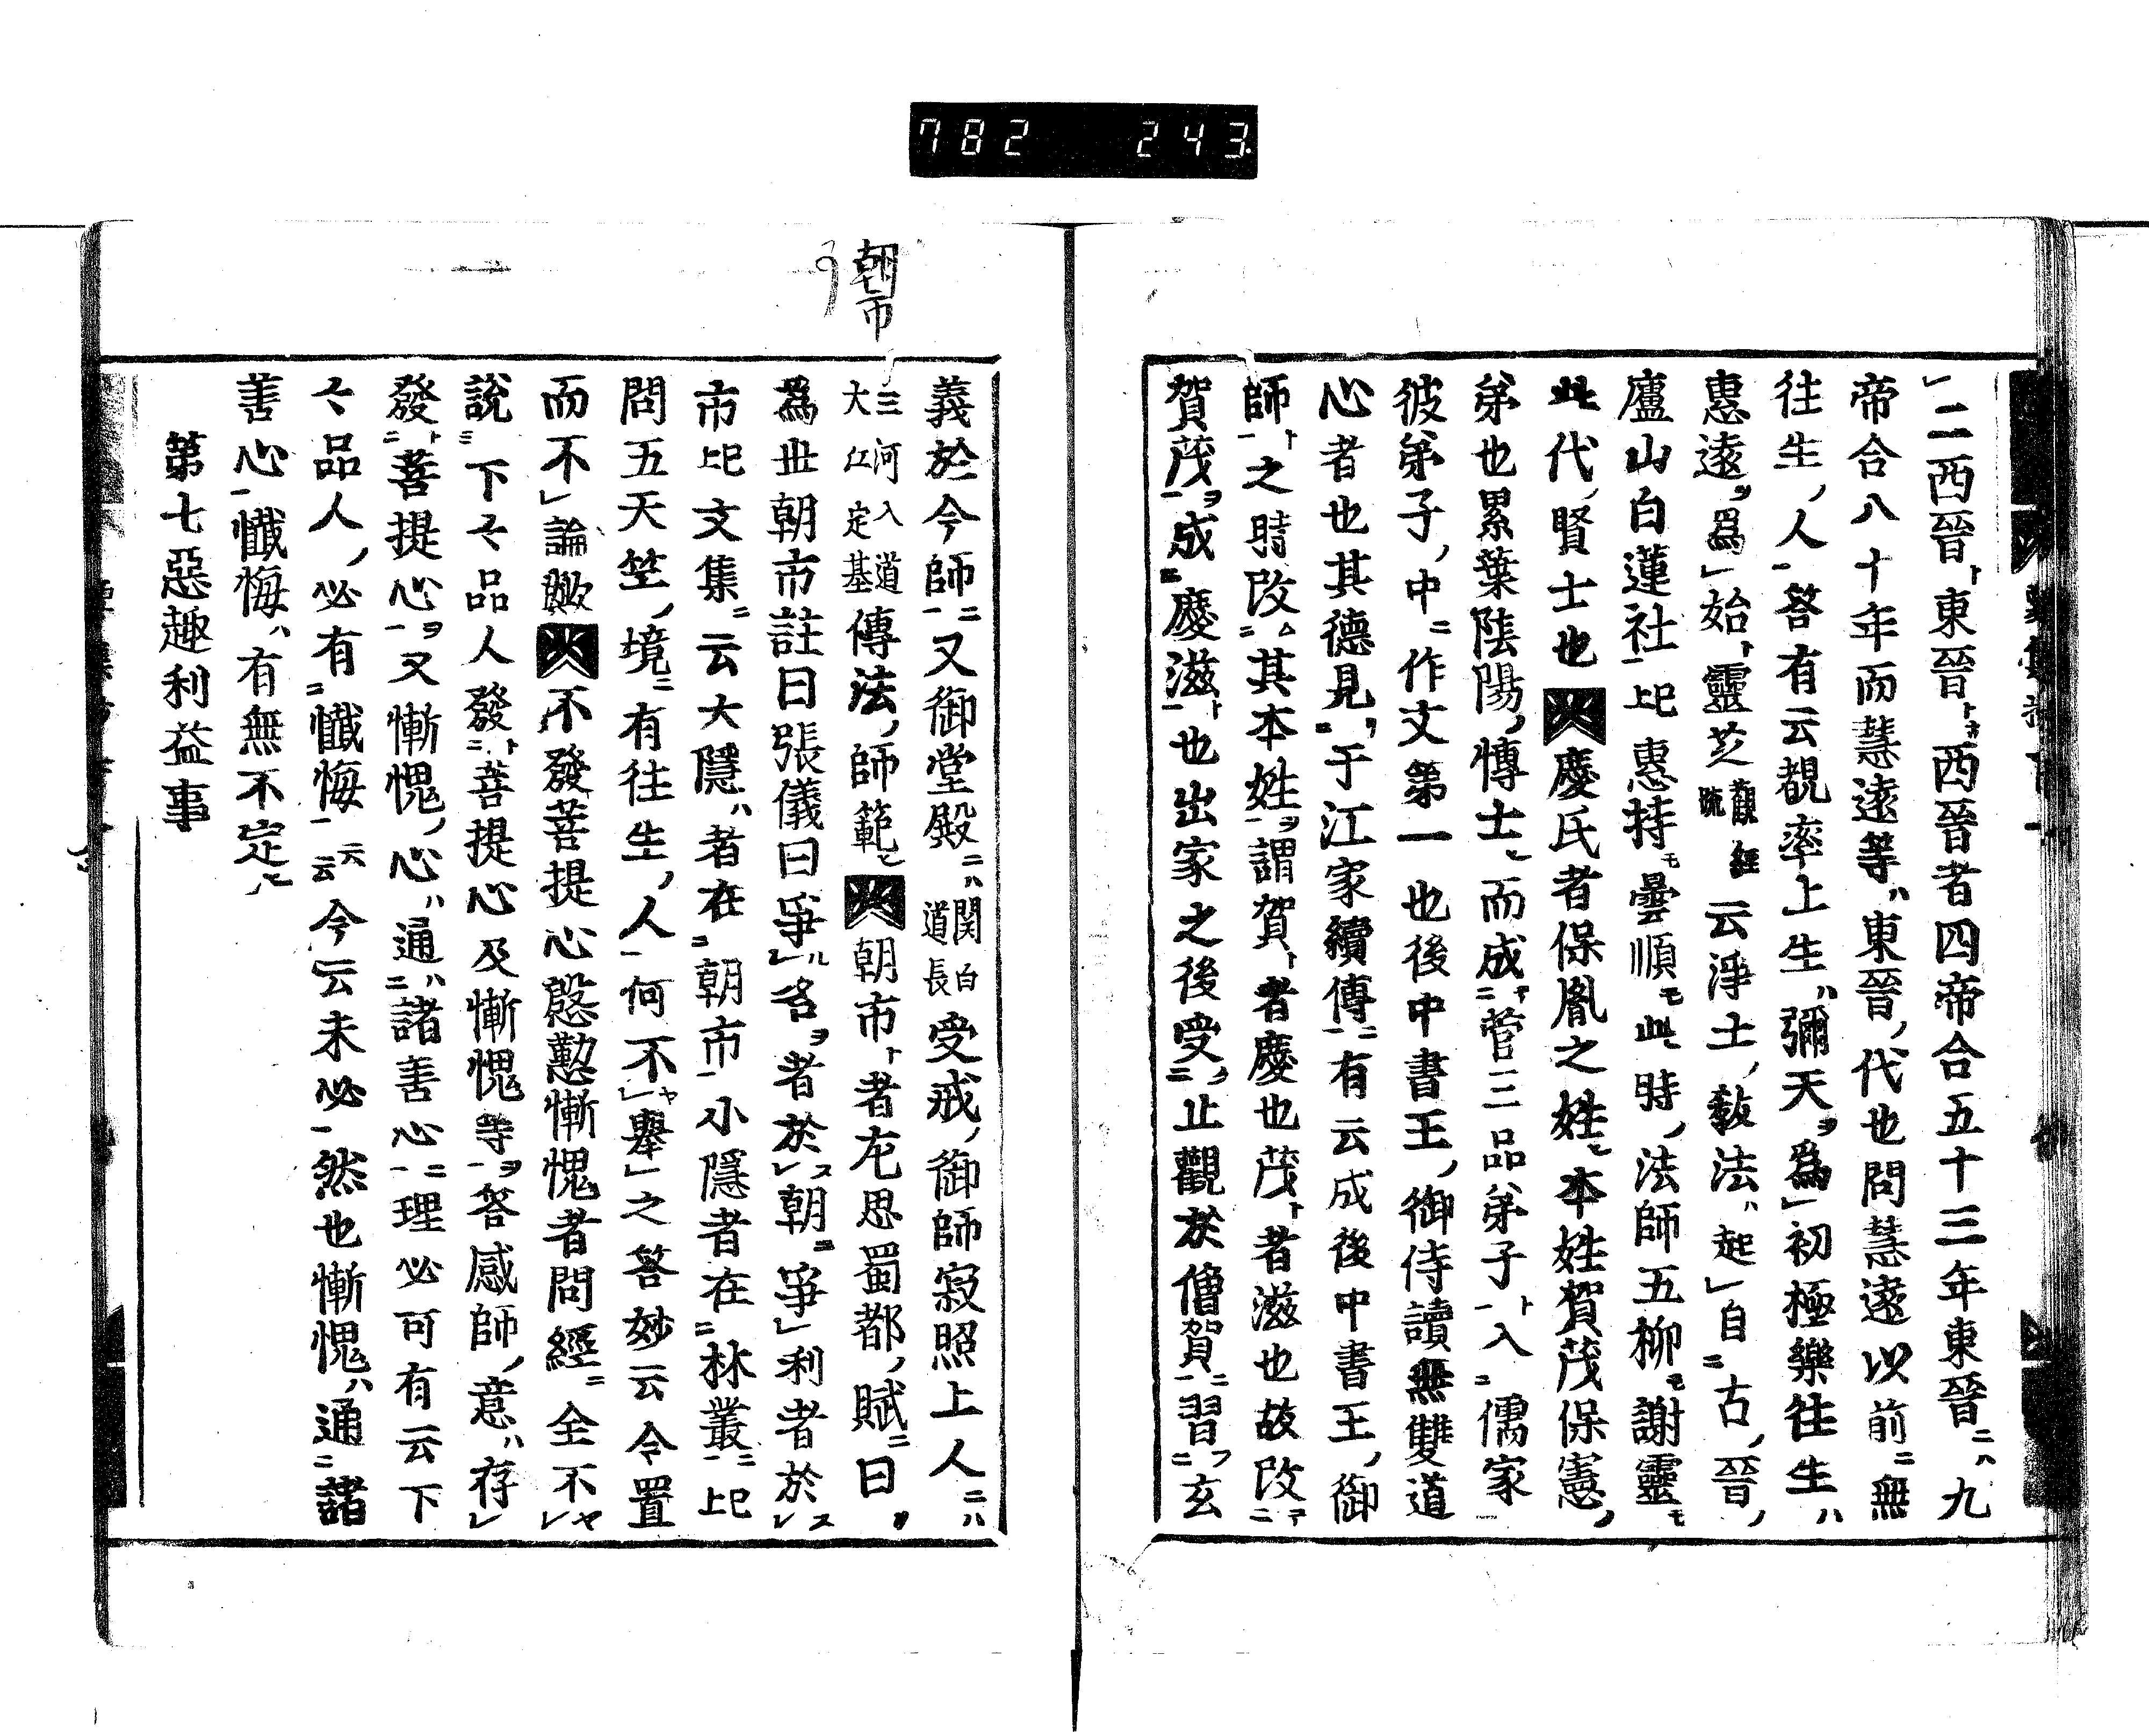 782 243
二西晉ト東晉トナ西晉者四帝合五十三年東晉ニハ九
帝合八十年而慧遠等ハ東晉ノ代也問慧遠以前ニ無
往生ノ人一答有云覩率上生ハ彌天ヲ為初極樂往生ハ
惠遠ヲ為始ト靈芝觀經疏云淨土ノ教法ハ起自ニ古ノ晉ノ
廬山白蓮社一巳惠持モ曇順モ此時ノ法師五柳モ謝靈モ
此代ノ賢士也慶氏者保胤之姓ヒ本姓賀茂保憲ノ
弟也累葉陰陽ノ博士ヒ而成ニテ菅三品弟子一ト入ニ儒家一
彼弟子ノ中ニ作文第一也後中書王ノ御侍讀無雙道
心者也其德見ニタ于江家續傳一ニ有云成後中書王ノ御
師一ト之時改ニム其本姓一ヲ謂賀ト者慶也茂ト者滋也故改ニテ
賀茂一ヲ成ニ慶滋一ト也出家之後受ニク止觀於僧賀一ニ習ニフ玄
朝市
義於今師一ニ又御堂殿ニハ関白道長受戒ノ御師寂照上人ニハ
三河入道大江定基傳法ノ師範ヒ朝市ト者左思蜀都ノ賦ニ曰ク
為世朝市註曰張儀曰爭ルレ名ヲ者於スレ朝ニ爭利者於スレ
市巳文集ニ云大隱ハ者在ニ朝市一小隱者在ニ林叢一ニ巳
問五天竺ノ境ニ有往生ノ人一何不ヤ擧之答妙云今置
而不論歟不發菩提心慇懃慚愧者問經ニ全不ヤレ
說ニ下々品人發ニト菩提心及慚愧等一ヲ答感師ノ意ハ存レ
發ニト菩提心一ヲ又慚愧ノ心ハ通ニハ諸善心一ニ理必可有云下
々品人ノ必有ニ懺悔一云云今云未必一然也慚愧ハ通ニ諸
善心一懺悔ハ有無不定ヒ
第七惡趣利益事